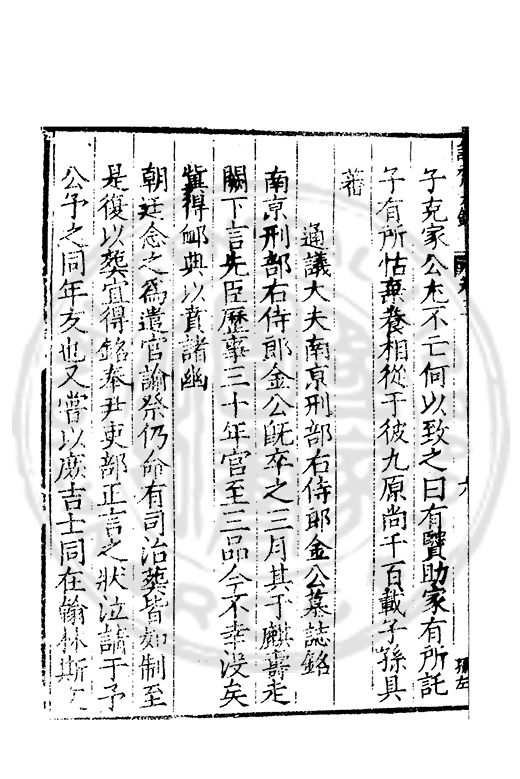 子克家公尤不亡何以致之曰有賢助家有所託
子有所怙棄養相從于彼九原尚千百載子孫具
著
通議大夫南京刑部右侍郎金公墓誌銘
南京刑部右侍郎金公旣卒之三月其子麒壽走
闕下言先臣歷事三十年官至三品今不幸沒矣
冀得卹典以賁諸幽
朝廷念之爲遣官諭祭仍命有司治葬皆如制至
是復以葬宜得銘奉尹吏部正言之狀泣請于予
公予之同年友也又嘗以庶吉士同在翰林斯文